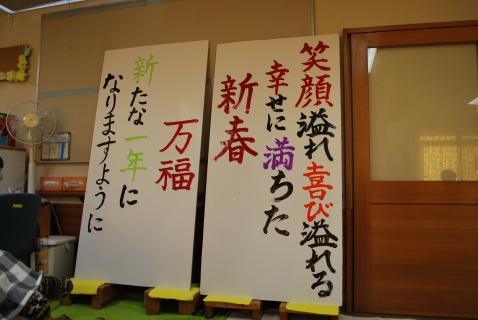 笑顔溢れ喜び溢れる
幸せに満ちた
新春
万福
新たな一年に
なりますように